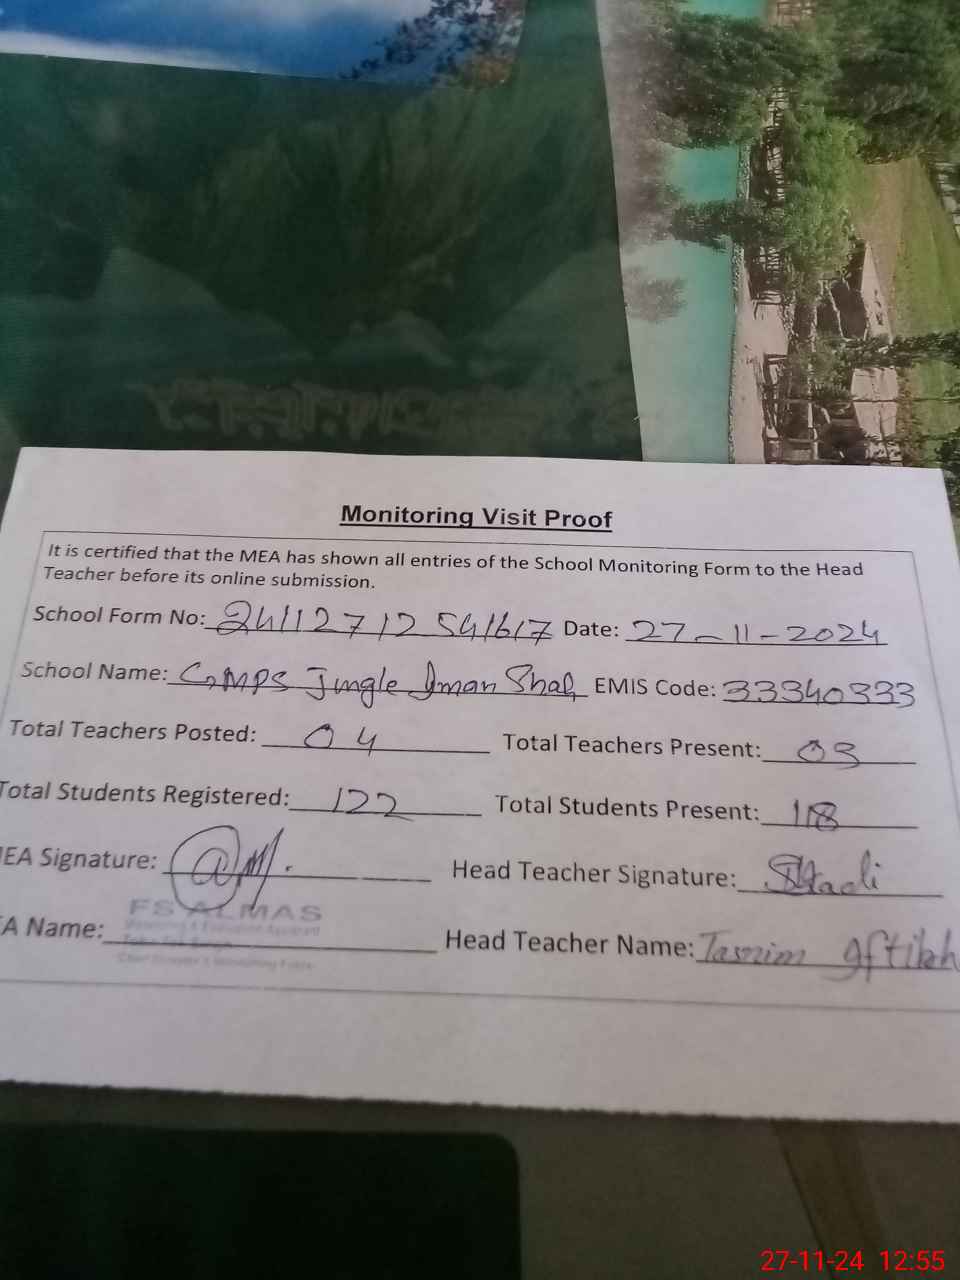 Monitoring Visit Proof
It is certified that the MEA has shown all entries of the School Monitoring Form to the Head
Teacher before its online submission.
School Form No: 24112712541617 Date: 27-11-2024
School Name: Gmps Jungle Iman Shah EMIS Code: 33340333
Total Teachers Posted: 04 Total Teachers Present: 03
Total Students Registered: 122 Total Students Present: 118
EA Signature: Head Teacher Signature:
A Name: FS ALMAS Head Teacher Name: Tasnim Iftikh
27-11-24 12:55